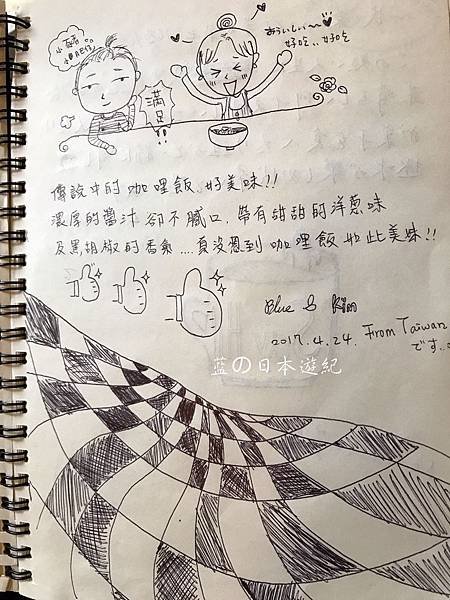 おういしい~
好吃、好吃
滿足!!
傳說中的咖哩飯好美味!!
濃厚的醬汁卻不膩口、帶有甜甜的洋蔥味
及黑胡椒的香氣....真沒想到咖哩飯如此美味!!
Blue & Kim
2017.4.24. From Taiwan
です..
藍の日本遊紀